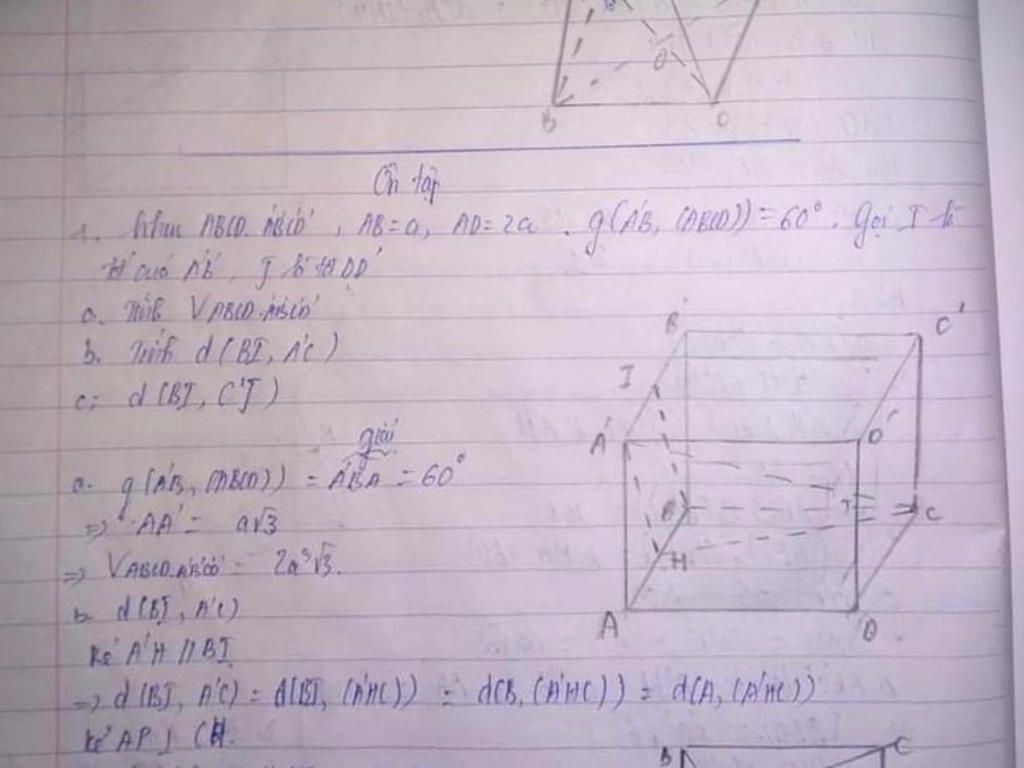 B C
Ôn tập
1. hhcn ABCD.A'B'C'D', AB=a, AD=2a. g(A'B, (ABCD))=60°. Gọi I là
tđ của A'B', J là tđ DD'
a. Tính VABCD.A'B'C'D'
b. Tính d(BI, A'C)
c; d(BI, C'J)
giải
a. g(A'B, (ABCD)) = A'BA = 60°
=> AA' = a√3
=> VABCD.A'B'C'D' = 2a³√3.
b. d(BI, A'C)
kẻ A'H // BI
=> d(BI, A'C) = d(BI, (A'HC)) = d(B, (A'HC)) = d(A, (A'HC))
kẻ AP ⊥ CH.
B' C'
I
A' D'
B J C
H
A D
B C